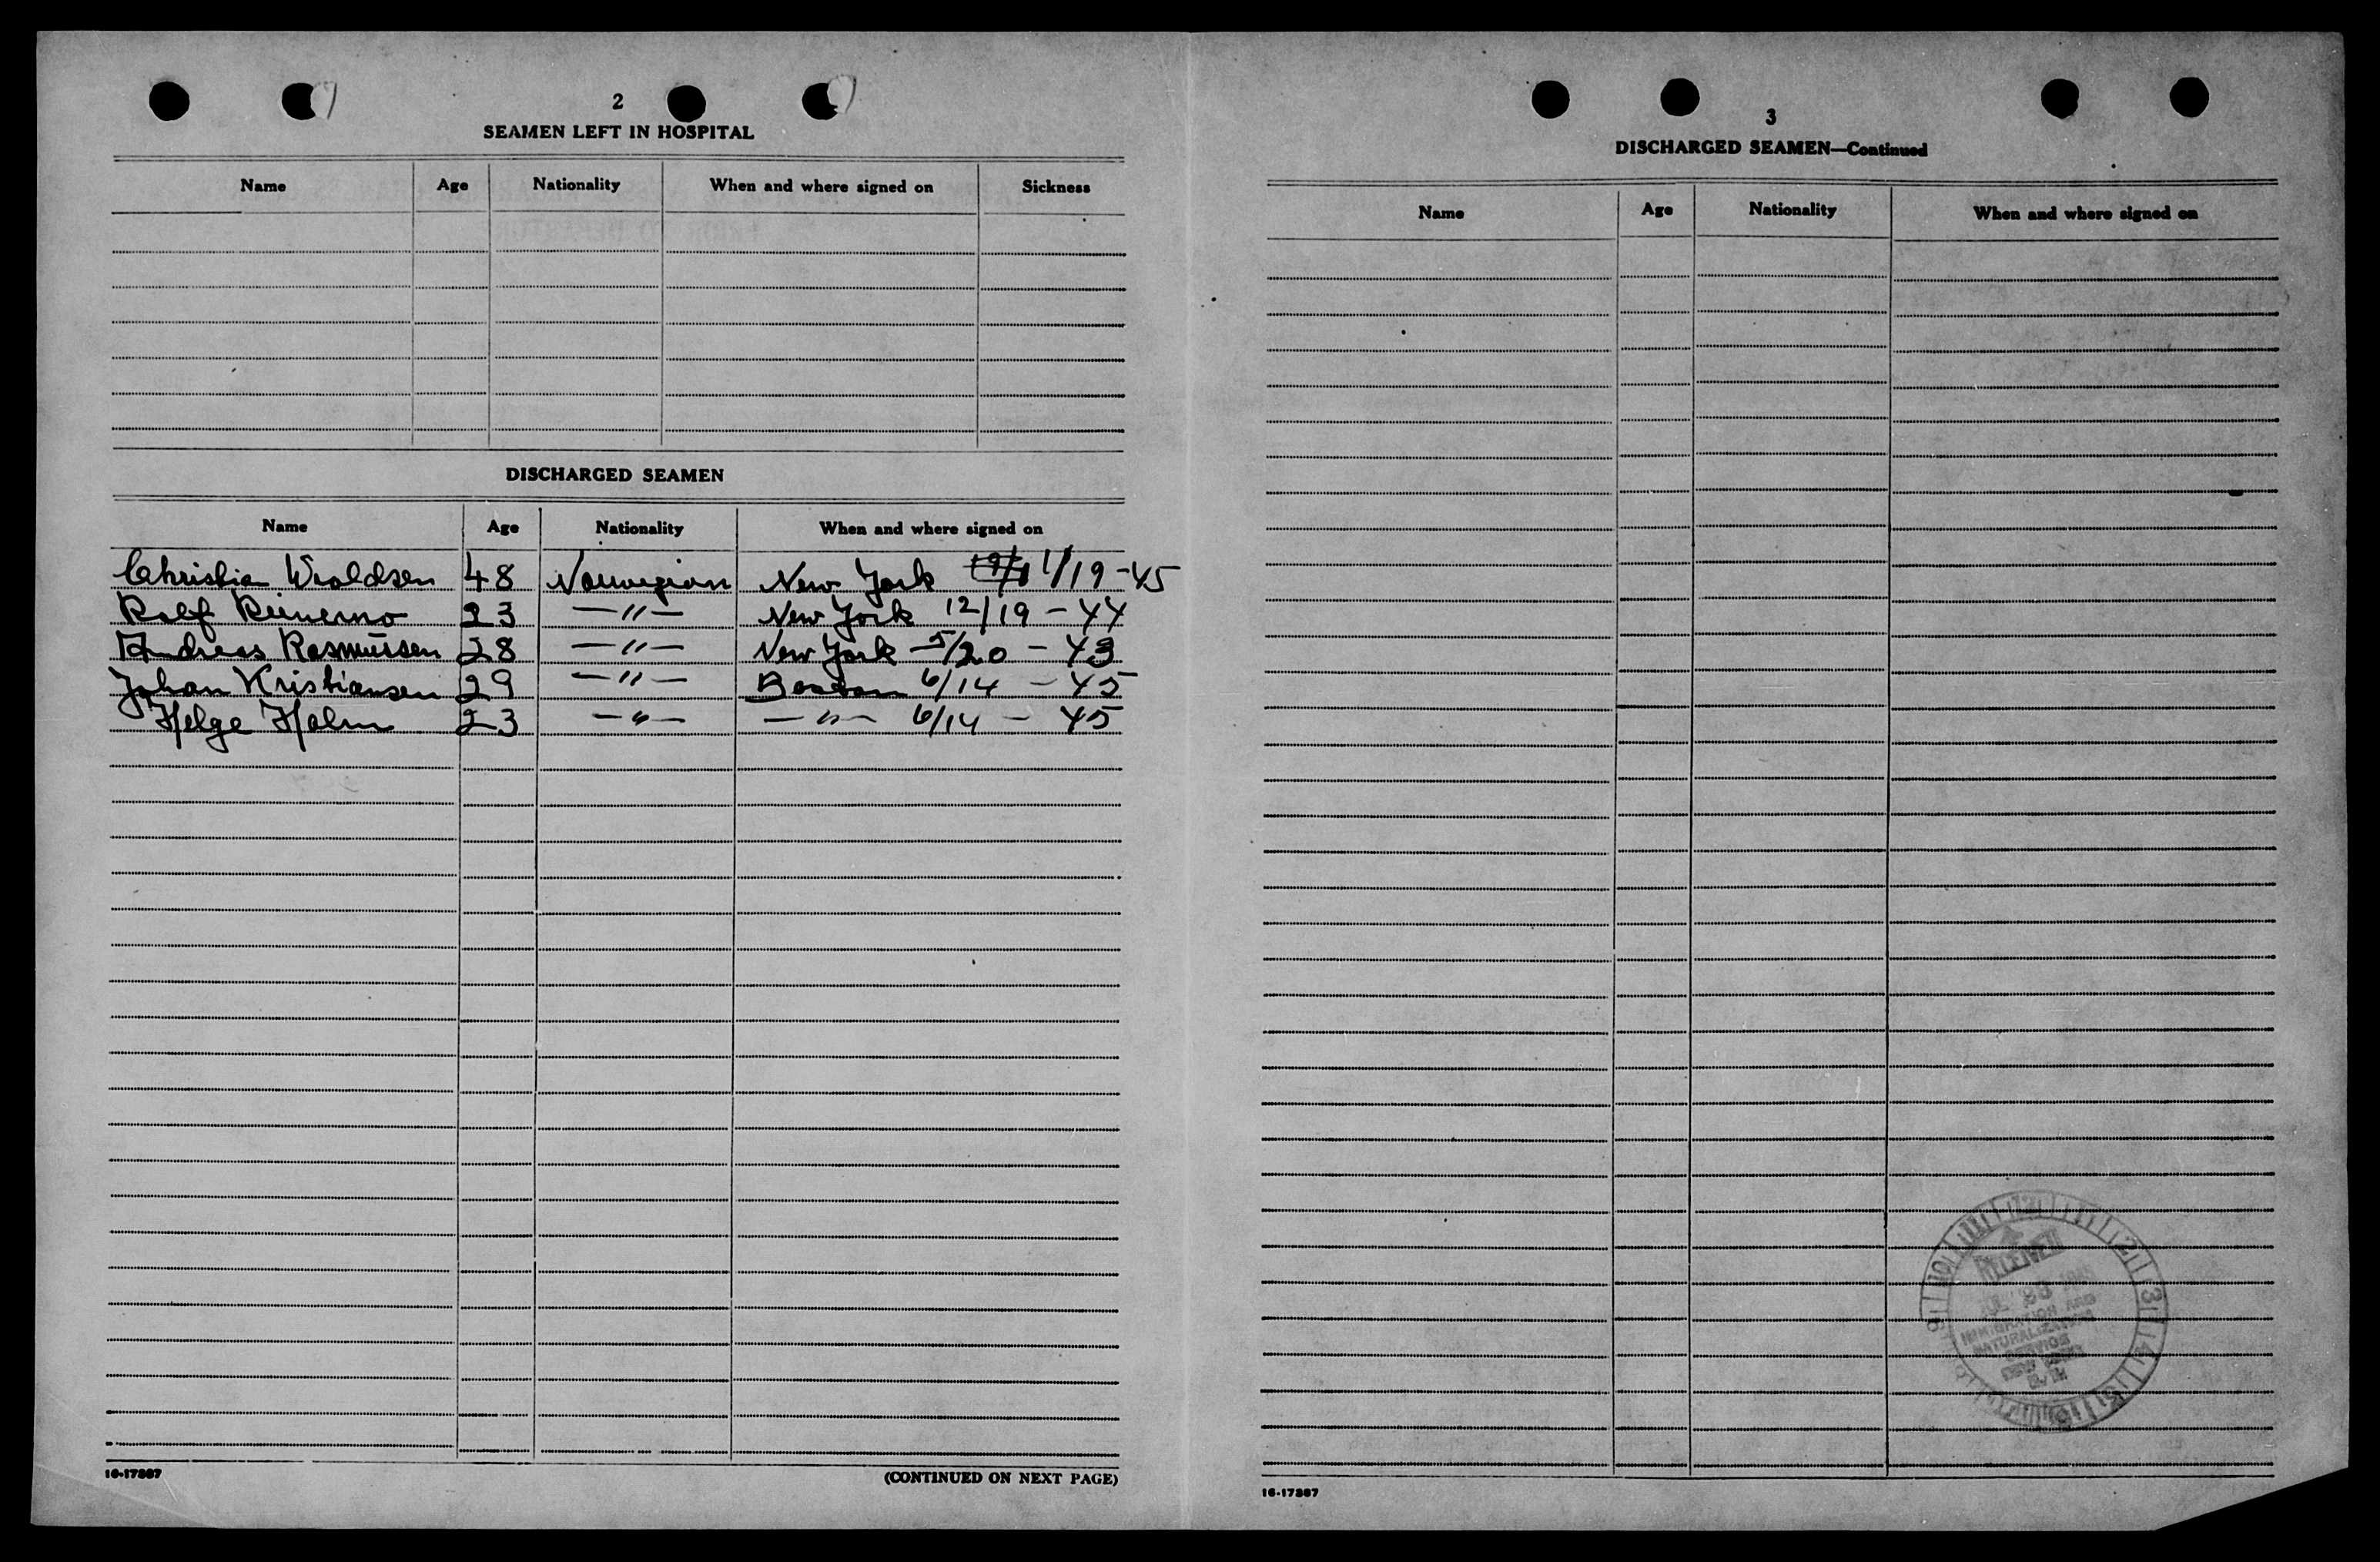 2
SEAMEN LEFT IN HOSPITAL
Name Age Nationality When and where signed on Sickness
DISCHARGED SEAMEN
Name Age Nationality When and where signed on
Christia 48 Norwegian New York 1/19-45
Rolf 23 —"— New York 12/19 - 44
Andreas Rasmussen 28 —"— New York 5/20 - 43
Johan Kristiansen 29 —"— Boston 6/14 - 45
Helge Holm 23 —"— —"— 6/14 - 45
16-17887
(CONTINUED ON NEXT PAGE)
3
DISCHARGED SEAMEN—Continued
Name Age Nationality When and where signed on
RECEIVED
IMMIGRATION AND
NATURALIZATION
SERVICE
16-17887